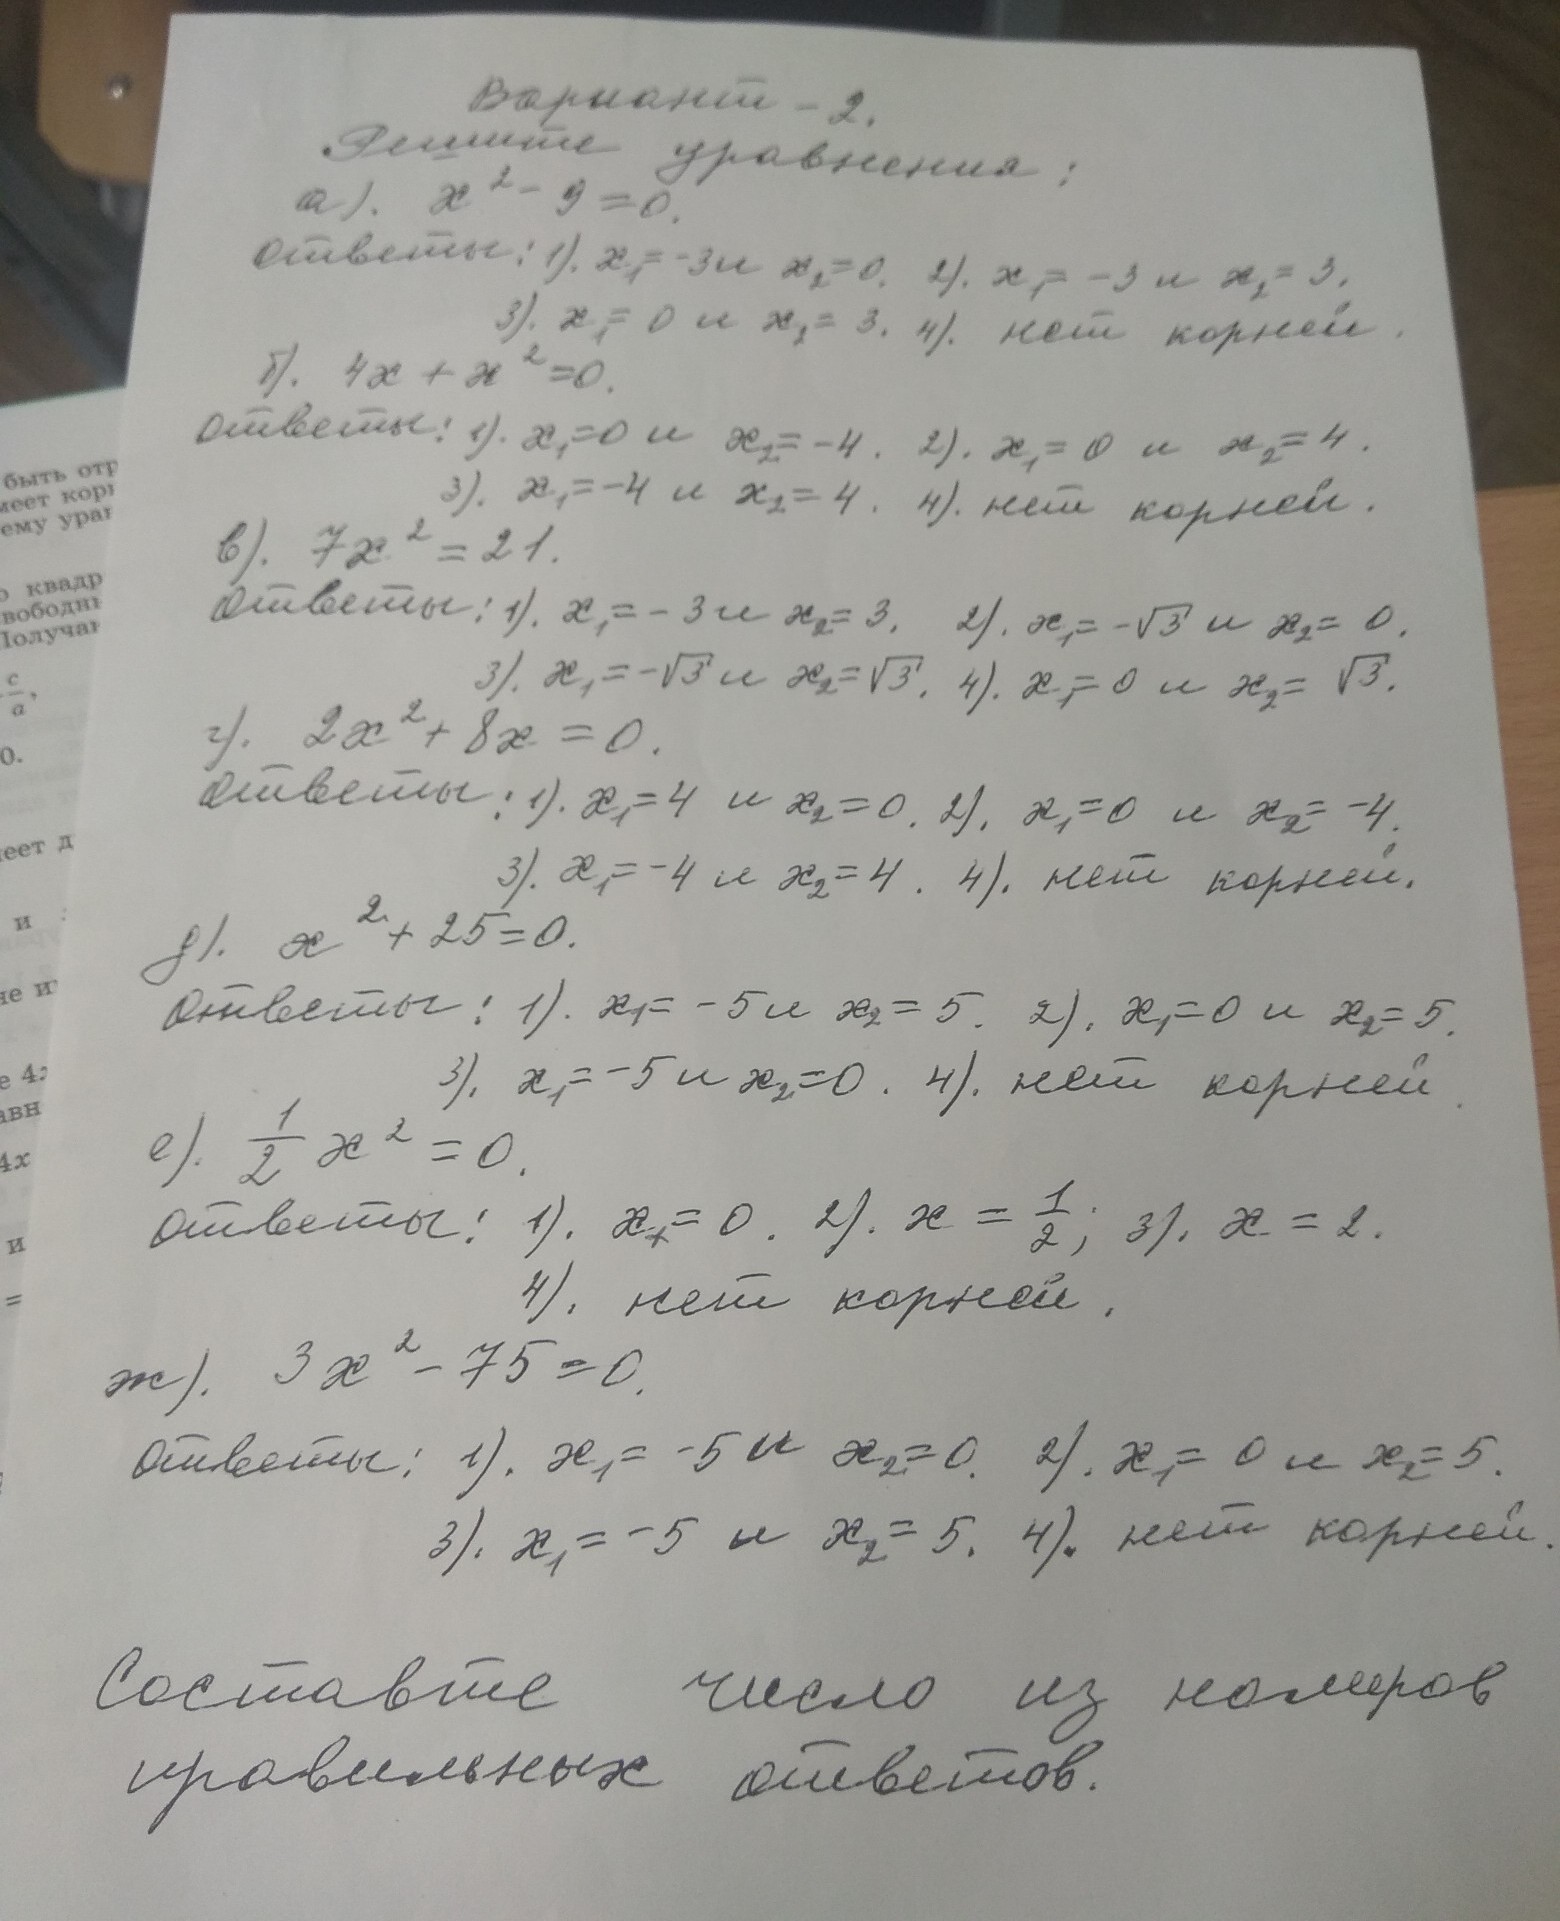 Вариант - 2.
Решите уравнения:
а). x² - 9 = 0.
Ответы: 1). x₁= -3 и x₂=0. 2). x₁= -3 и x₂= 3.
3). x₁= 0 и x₂= 3. 4). нет корней.
б). 4x + x² =0.
Ответы: 1). x₁=0 и x₂= -4. 2). x₁= 0 и x₂= 4.
3). x₁= -4 и x₂= 4. 4). нет корней.
в). 7x² = 21.
Ответы: 1). x₁= -3 и x₂= 3. 2). x₁= -√3 и x₂= 0.
3). x₁= -√3 и x₂= √3. 4). x₁= 0 и x₂= √3.
г). 2x² + 8x = 0.
Ответы: 1). x₁=4 и x₂=0. 2). x₁=0 и x₂= -4.
3). x₁= -4 и x₂= 4. 4). нет корней.
д). x² + 25=0.
Ответы: 1). x₁= -5 и x₂= 5. 2). x₁=0 и x₂= 5.
3). x₁= -5 и x₂=0. 4). нет корней.
е). 1/2 x² = 0.
Ответы: 1). x = 0. 2). x = 1/2; 3). x = 2.
4). нет корней.
ж). 3x² - 75 = 0.
Ответы: 1). x₁= -5 и x₂=0. 2). x₁= 0 и x₂= 5.
3). x₁= -5 и x₂= 5. 4). нет корней.
Составте число из номеров
правильных ответов.
быть
c/a,
0.
д
и
4x
и
=